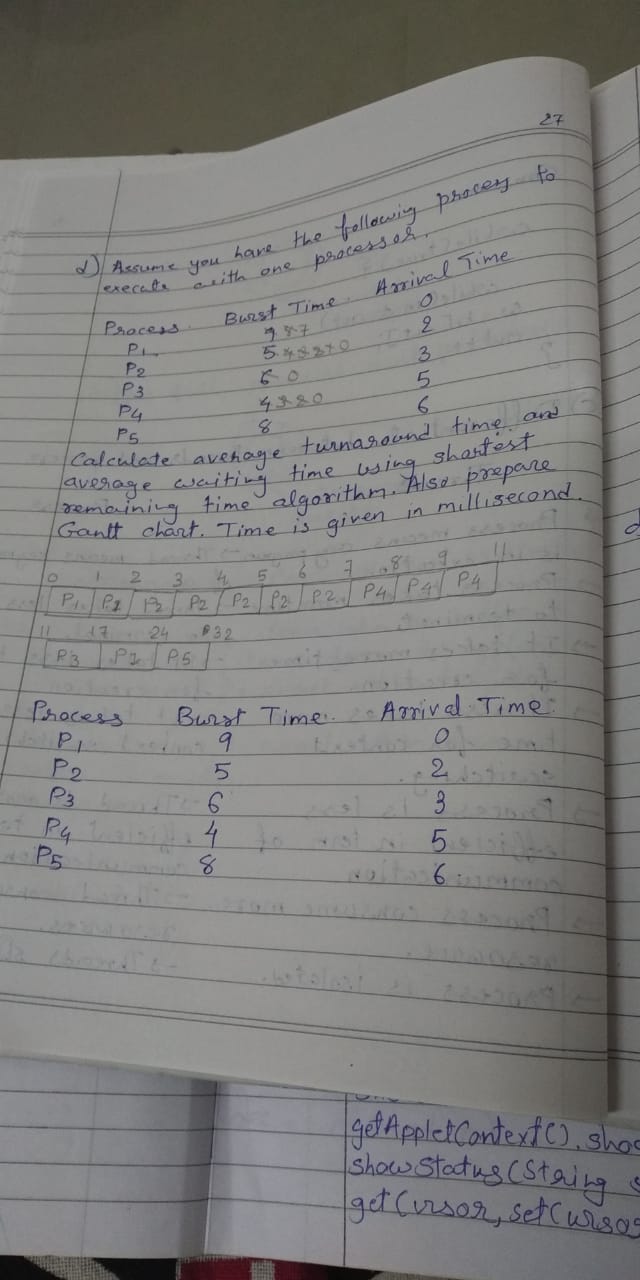 27
d) Assume you have the following process to
execute with one processor.
Process Burst Time Arrival Time
P1 9 8 7 0
P2 5 4 3 2 1 0 2
P3 6 0 3
P4 4 3 2 0 5
P5 8 6
Calculate average turnaround time and
average waiting time using shortest
remaining time algorithm. Also prepare
Gantt chart. Time is given in millisecond.
0 1 2 3 4 5 6 7 8 9 11
P1 P1 P2 P2 P2 P2 P2 P4 P4 P4
11 17 24 32
P3 P1 P5
Process Burst Time Arrival Time
P1 9 0
P2 5 2
P3 6 3
P4 4 5
P5 8 6
getAppletContext(). sho
showStatus(String s
getCursor, setCurso